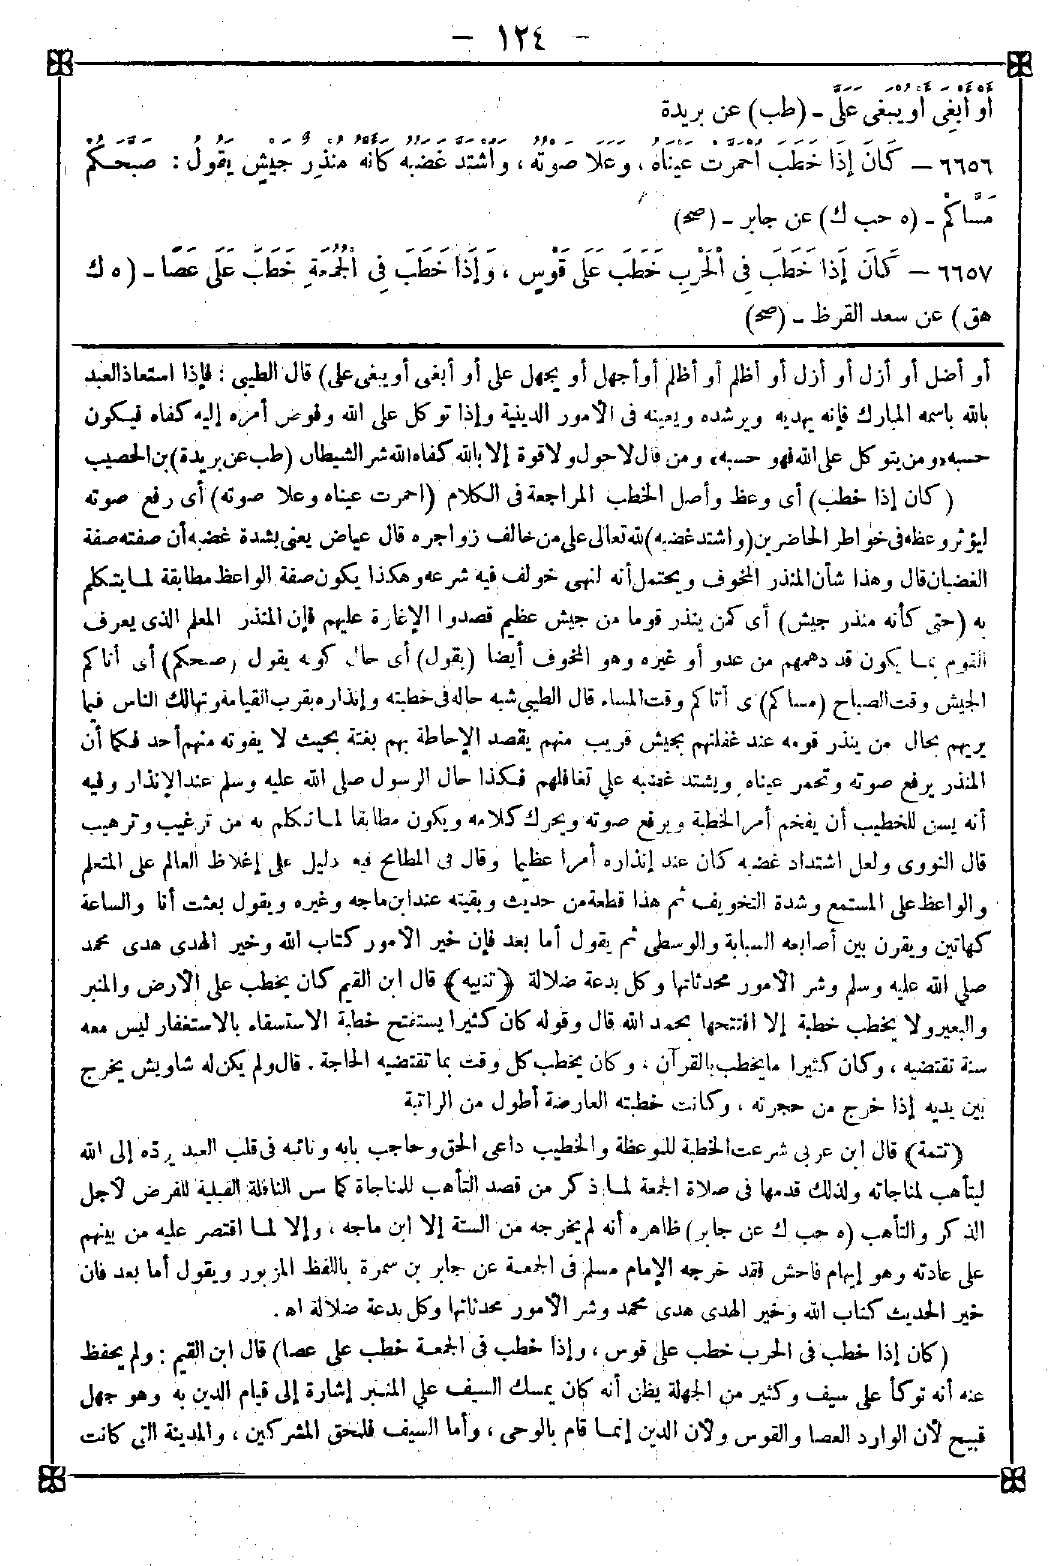 - ١٢٤ -
أَوْ أَبْغِىَ أَوْ يُبْغَى عَلَىَّ - (طب) عن بريدة
٦٦٥٦ - كَانَ إِذَا خَطَبَ احْمَرَّتْ عَيْنَاهُ ، وَعَلَا صَوْتُهُ ، وَاشْتَدَّ غَضَبُهُ كَأَنَّهُ مُنْذِرُ جَيْشٍ يَقُولُ : صَبَّحَكُمْ
مَسَّاكُمْ - (ه حب ك) عن جابر - (صح)
٦٦٥٧ - كَانَ إِذَا خَطَبَ فِى الْحَرْبِ خَطَبَ عَلَى قَوْسٍ ، وَإِذَا خَطَبَ فِى الْجُمُعَةِ خَطَبَ عَلَى عَصًا - (ه ك
هق) عن سعد القرظ - (صح)
أو أضل أو أزل أو أزل أو أظلم أو أظلم أو أجهل أو يجهل على أو أبغى أو يبغى على) قال الطيبى : فإذا استعاذ العبد
بالله باسمه المبارك فإنه يهديه ويرشده ويعينه فى الأمور الدينية وإذا توكل على الله وفوض أمره إليه كفاه فيكون
حسبه «ومن يتوكل على الله فهو حسبه» ومن قال لاحول ولا قوة إلا بالله كفاه الله شر الشيطان (طب عن بريدة) بن الحصيب
(كان إذا خطب) أى وعظ وأصل الخطب المراجعة فى الكلام (احمرت عيناه وعلا صوته) أى رفع صوته
ليؤثر وعظه فى خواطر الحاضرين (واشتد غضبه) لله تعالى على من خالف زواجره قال عياض يعنى بشدة غضبه أن صفته صفة
الغضبان قال وهذا شأن المنذر المخوف ويحتمل أنه لنهى خولف فيه شرعه وهكذا يكون صفة الواعظ مطابقة لما يتكلم
به (حتى كأنه منذر جيش) أى كمن ينذر قوما من جيش عظيم قصدوا الإغارة عليهم فإن المنذر المعلم الذى يعرف
القوم بما يكون قد دهمهم من عدو أو غيره وهو المخوف أيضا (يقول) أى حال كونه يقول (صبحكم) أى أتاكم
الجيش وقت الصباح (مساكم) ى أتاكم وقت المساء قال الطيبى شبه حاله فى خطبته وإنذاره بقرب القيامة وتهالك الناس فيما
يريهم بحال من ينذر قومه عند غفلتهم بجيش قريب منهم يقصد الإحاطة بهم بغتة بحيث لا يفوته منهم أحد فكما أن
المنذر يرفع صوته وتحمر عيناه ويشتد غضبه على تغافلهم فكذا حال الرسول صلى الله عليه وسلم عند الإنذار وفيه
أنه يسن للخطيب أن يفخم أمر الخطبة ويرفع صوته ويحرك كلامه ويكون مطابقا لما تكلم به من ترغيب وترهيب
قال النووى ولعل اشتداد غضبه كان عند إنذاره أمرا عظيما وقال فى المطامح فيه دليل على إغلاظ العالم على المتعلم
والواعظ على المستمع وشدة التخويف ثم هذا قطعة من حديث وبقيته عند ابن ماجه وغيره ويقول بعثت أنا والساعة
كهاتين ويقرن بين أصابعه السبابة والوسطى ثم يقول أما بعد فإن خير الأمور كتاب الله وخير الهدى هدى محمد
صلى الله عليه وسلم وشر الأمور محدثاتها وكل بدعة ضلالة (تنبيه) قال ابن القيم كان يخطب على الأرض والمنبر
والبعير ولا يخطب خطبة إلا افتتحها بحمد الله قال وقوله كان كثيرا يستفتح خطبة الاستسقاء بالاستغفار ليس معه
سنة تقتضيه ، وكان كثيرا ما يخطب بالقرآن ، وكان يخطب كل وقت بما تقتضيه الحاجة . قال ولم يكن له شاويش يخرج
بين يديه إذا خرج من حجرته ، وكانت خطبته العارضة أطول من الراتبة
(تتمة) قال ابن عربى شرعت الخطبة للموعظة والخطيب داعى الحق وحاجب بابه ونائبه فى قلب العبد يرده إلى الله
ليتأهب لمناجاته ولذلك قدمها فى صلاة الجمعة لما ذكر من قصد التأهب للمناجاة كما سن النافلة القبلية للفرض لأجل
الذكر والتأهب (ه حب ك عن جابر) ظاهره أنه لم يخرجه من الستة إلا ابن ماجه ، وإلا لما اقتصر عليه من بينهم
على عادته وهو إيهام فاحش فقد خرجه الإمام مسلم فى الجمعة عن جابر بن سمرة باللفظ المزبور ويقول أما بعد فان
خير الحديث كتاب الله وخير الهدى هدى محمد وشر الأمور محدثاتها وكل بدعة ضلالة اه .
(كان إذا خطب فى الحرب خطب على قوس ، وإذا خطب فى الجمعة خطب على عصا) قال ابن القيم : ولم يحفظ
عنه أنه توكأ على سيف وكثير من الجهلة يظن أنه كان يمسك السيف على المنبر إشارة إلى قيام الدين به وهو جهل
قبيح لأن الوارد العصا والقوس ولأن الدين إنما قام بالوحى ، وأما السيف فلمحق المشركين ، والمدينة التى كانت